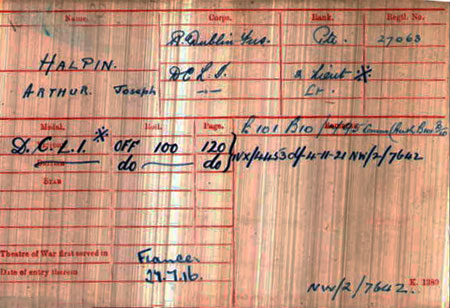 Name. Corps. Rank. Regtl. No.
R. Dublin Fus. Pte. 27063
HALPIN. D.C.L.I. 2 Lieut
ARTHUR. Joseph — Lt.
Medal. Roll. Page.
D.C.L.I. OFF 100 120 E 101 B10
do — do NW/2/7642
STAR
Theatre of War first served in France
Date of entry therein 27.7.16.
K. 1380
NW/2/7642.